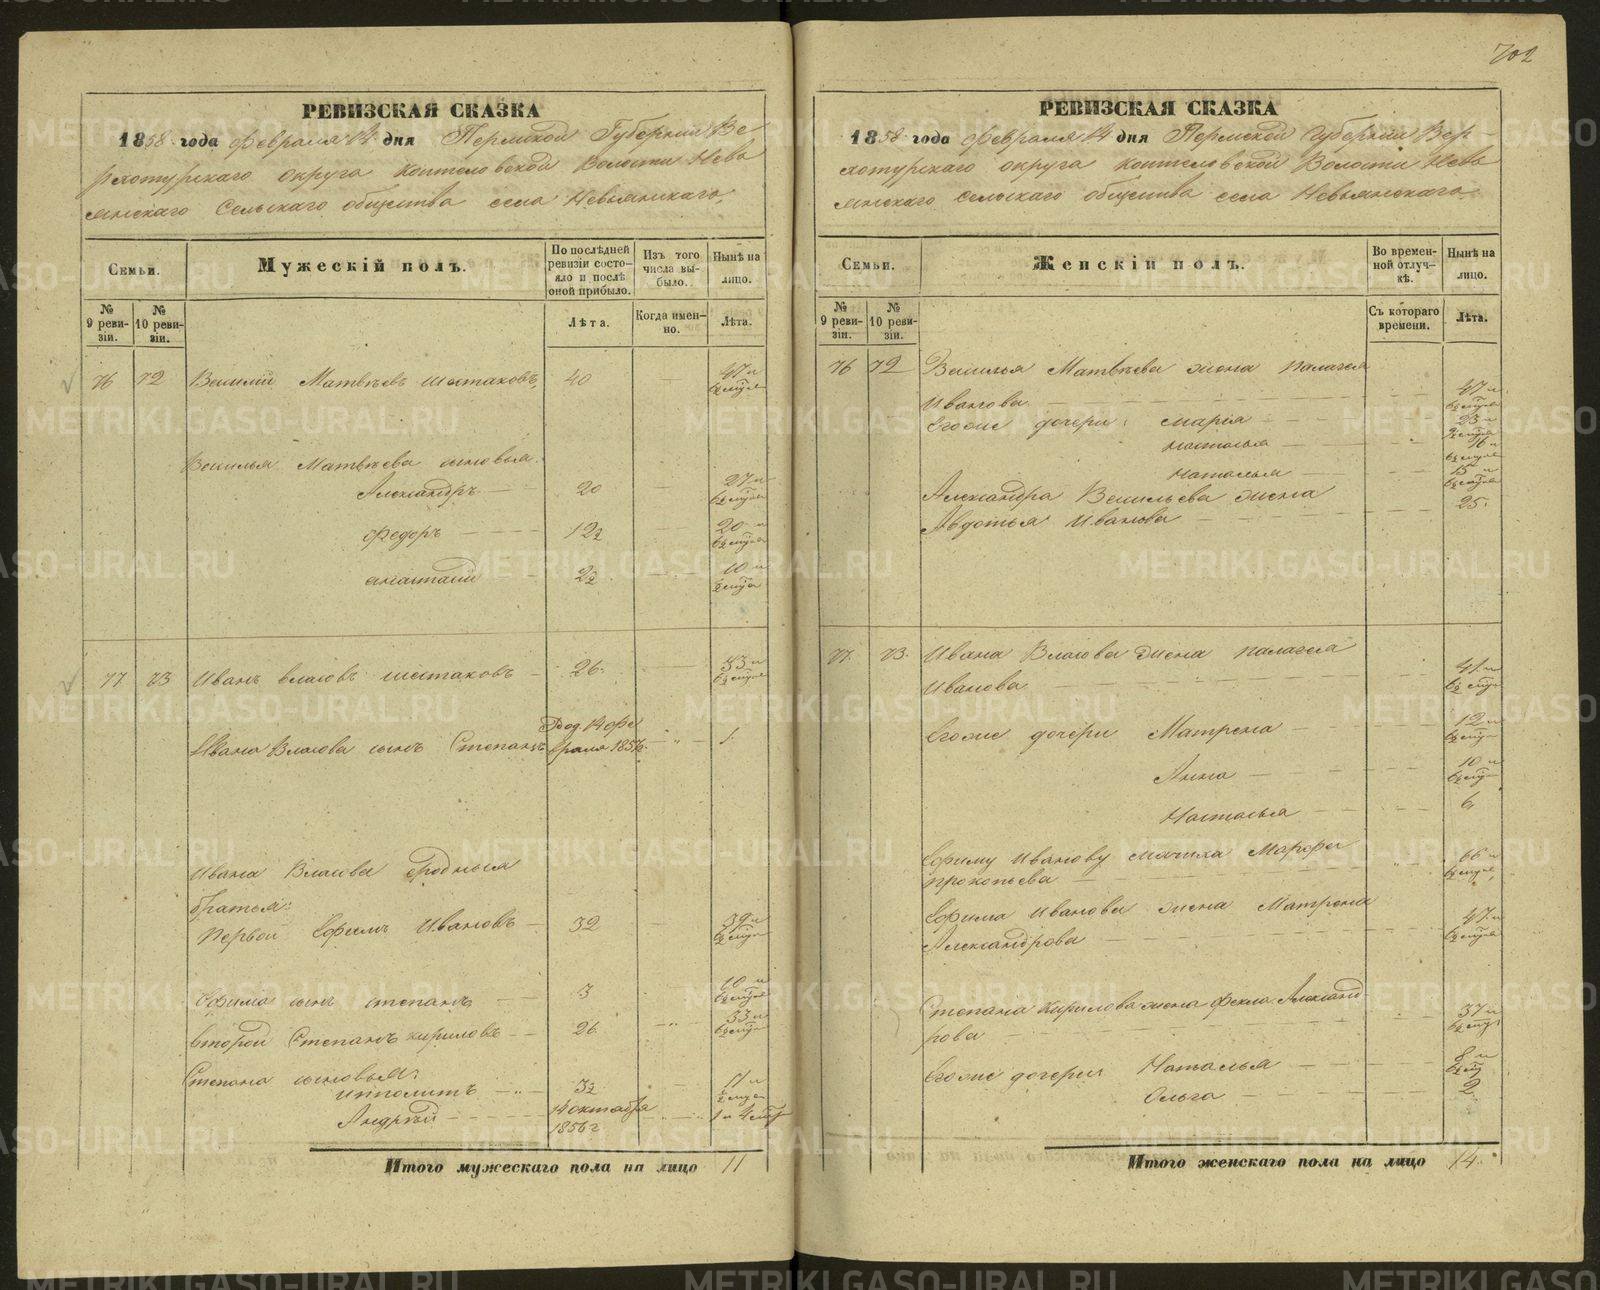 702
РЕВИЗСКАЯ СКАЗКА
1858 года февраля 14 дня Пермской Губернии Ве-
рхотурскаго округа Коптеловской Волости Невь
янскаго Сельскаго общества села Невьянскаго
Семьи.
Мужескій полъ.
По послѣдней ревизіи состояло и послѣ оной прибыло.
Изъ того числа выбыло.
Нынѣ на лицо.
№ 9 ревизіи.
№ 10 ревизіи.
Лѣта.
Когда именно.
Лѣта.
76 72 Василий Матвѣевъ Шестаковъ 40 47 и
Василья Матвѣева сыновья
Александръ 20 27 и
Федоръ 12½ 20 и
Анастасій 2½ 10 и
77 73 Иванъ Власовъ Шестаковъ 26 33 и
Ивана Власова сынъ Степанъ Род. 14 фе
враля 1857 1
Ивана Власова Родныя
братья:
Первой Ефимъ Ивановъ 32 39 и
Ефима сынъ Степанъ 3 10 и
второй Степанъ Кириловъ 26 33 и
Степана сыновья:
Ипполитъ 3½ 11 и
Андрѣй 14 октября
1856 г 1 и 4 мѣ
Итого мужескаго пола на лицо 11
РЕВИЗСКАЯ СКАЗКА
1858 года февраля 14 дня Пермской Губернии Вер-
хотурскаго округа Коптеловской Волости Невь
янскаго сельскаго общества села Невьянскаго
Семьи.
Женскій полъ.
Во временной отлучкѣ.
Нынѣ на лицо.
№ 9 ревизіи.
№ 10 ревизіи.
Съ котораго времени.
Лѣта.
76 72 Василья Матвѣева жена Палагея
Иванова 47 и
Егоже дочери: Марія 23 и
Настасья 16 и
Наталья 15 и
Александра Васильева жена 25
Авдотья Иванова
77 73 Ивана Власова жена Палагея
Иванова 41 и
Егоже дочери Матрена 12 и
Анна 10 и
Настасья 6
Ефиму Иванову мачиха Марфа
Прокопьева 66 и
Ефима Иванова жена Матрена
Александрова 47 и
Степана Кирилова жена Фекла Александ
рова 37 и
Егоже дочери Наталья 8 и
Ольга 2
Итого женскаго пола на лицо 14
METRIKI.GASO-URAL.RU